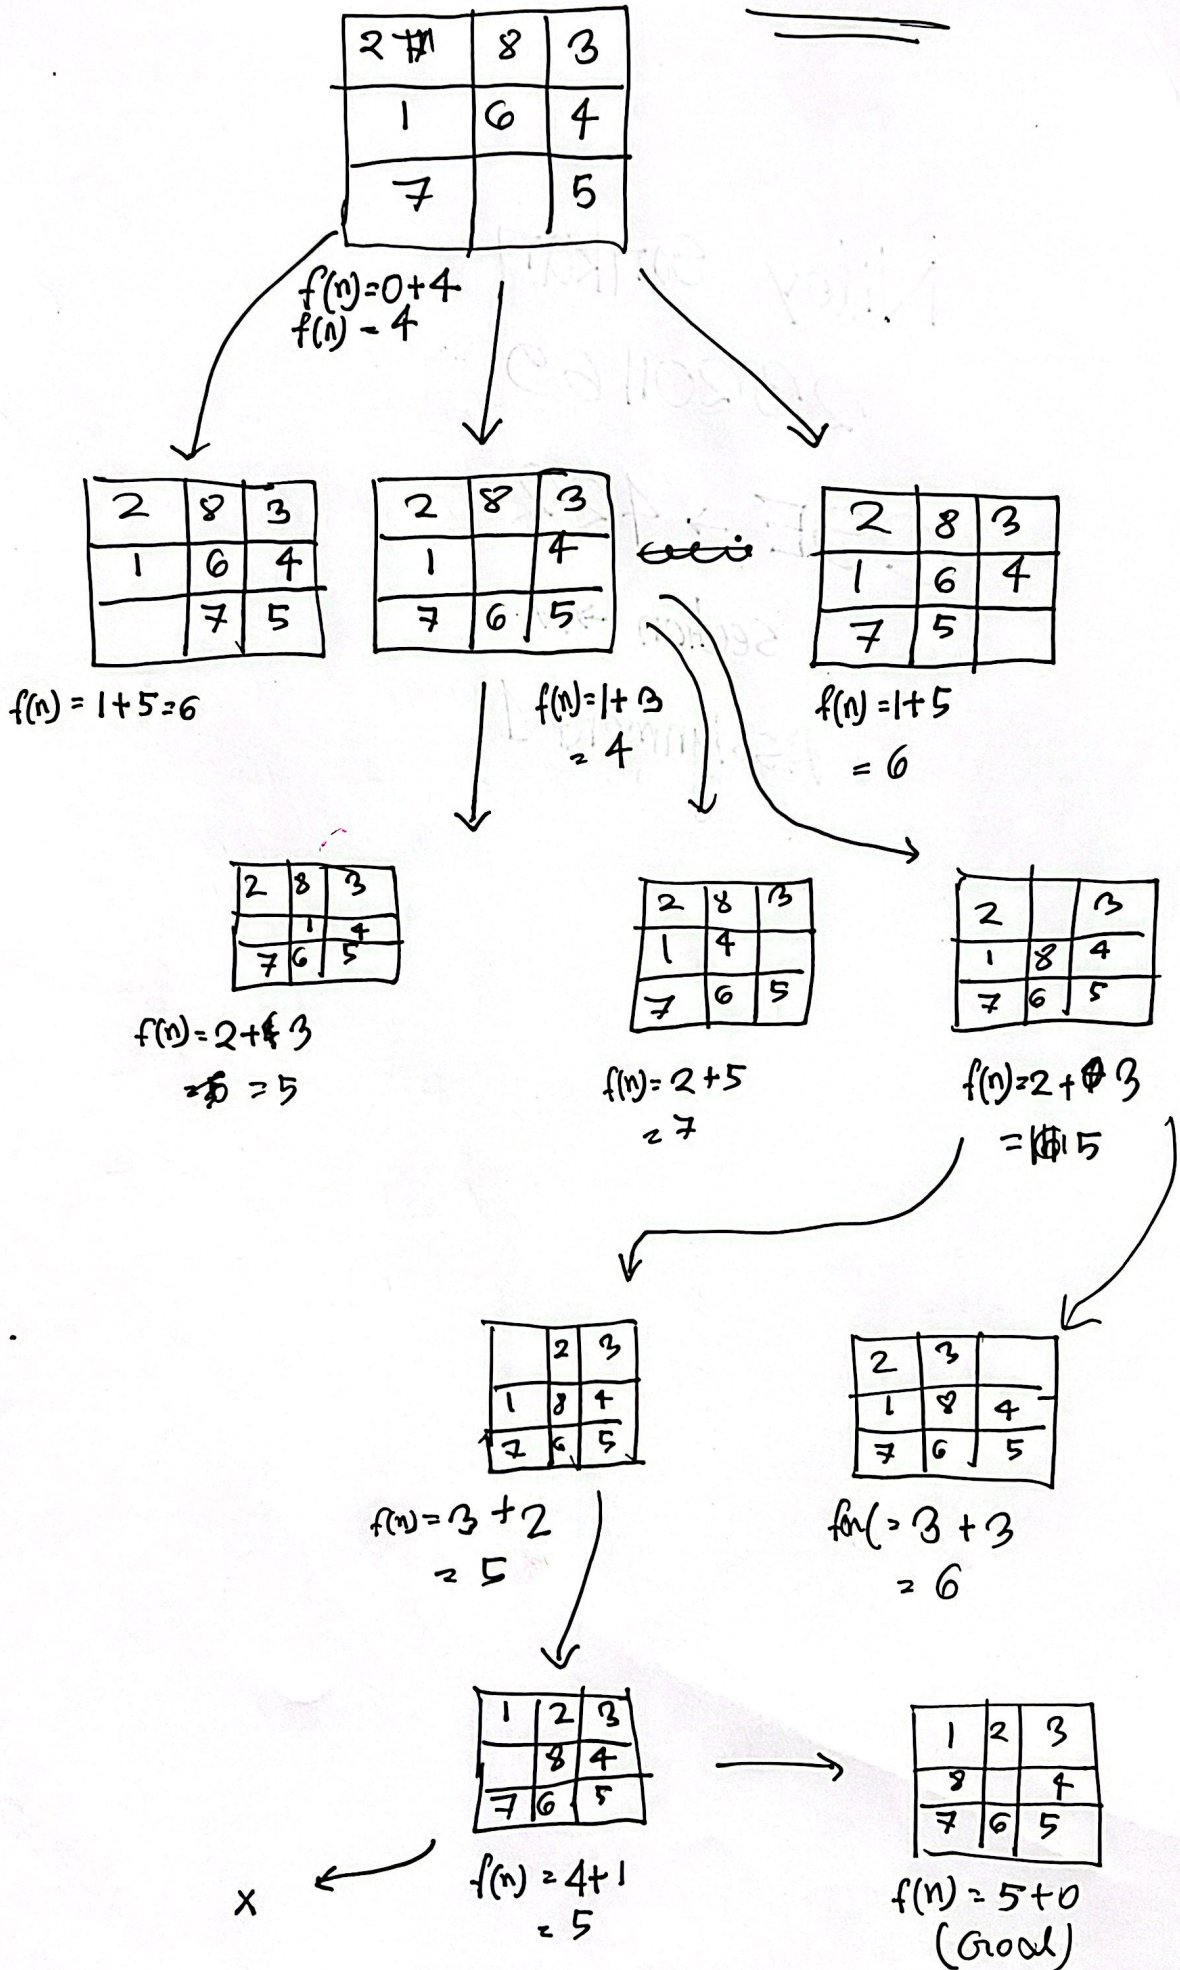 2 8 3
1 6 4
7 5
f(n)=0+4
f(n) = 4
2 8 3
1 6 4
7 5
f(n) = 1+5=6
2 8 3
1 4
7 6 5
f(n)=1+3
= 4
2 8 3
1 6 4
7 5
f(n)=1+5
= 6
2 8 3
1 4
7 6 5
f(n)=2+3
= 5
2 8 3
1 4
7 6 5
f(n)=2+5
= 7
2 3
1 8 4
7 6 5
f(n)=2+3
= 5
2 3
1 8 4
7 6 5
f(n)=3+2
= 5
2 3
1 8 4
7 6 5
= 3+3
= 6
1 2 3
8 4
7 6 5
f(n) = 4+1
= 5
x
1 2 3
8 4
7 6 5
f(n) = 5+0
(Goal)